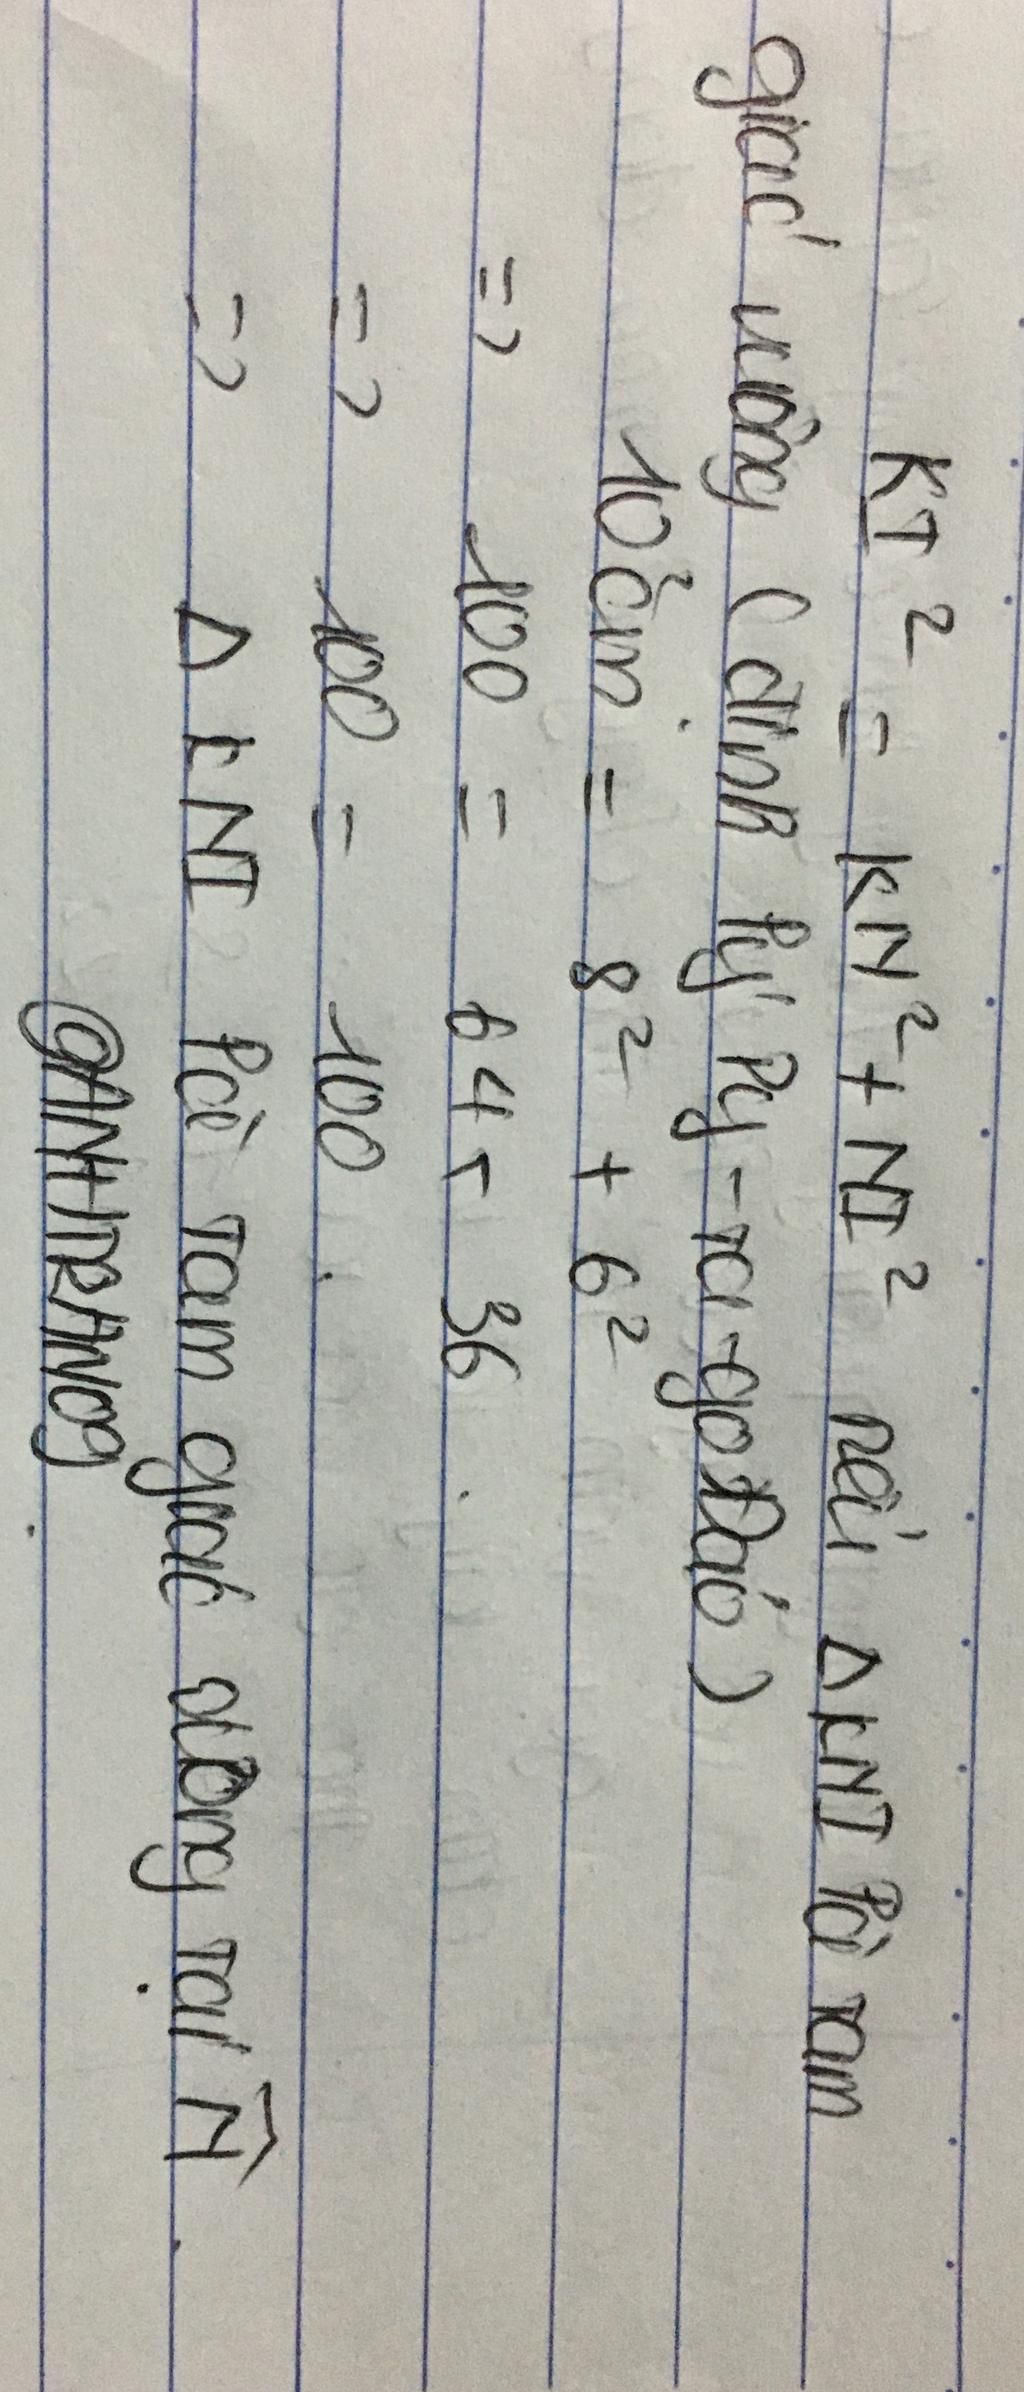 KI² = KN² + NI² nếu Δ KNI là tam
giác vuông (định lý Py-ta-go đảo)
10²cm = 8² + 6²
=> 100 = 64 + 36
=> 100 = 100
=> Δ KNI là tam giác vuông tại N̂
@ANHTRANG